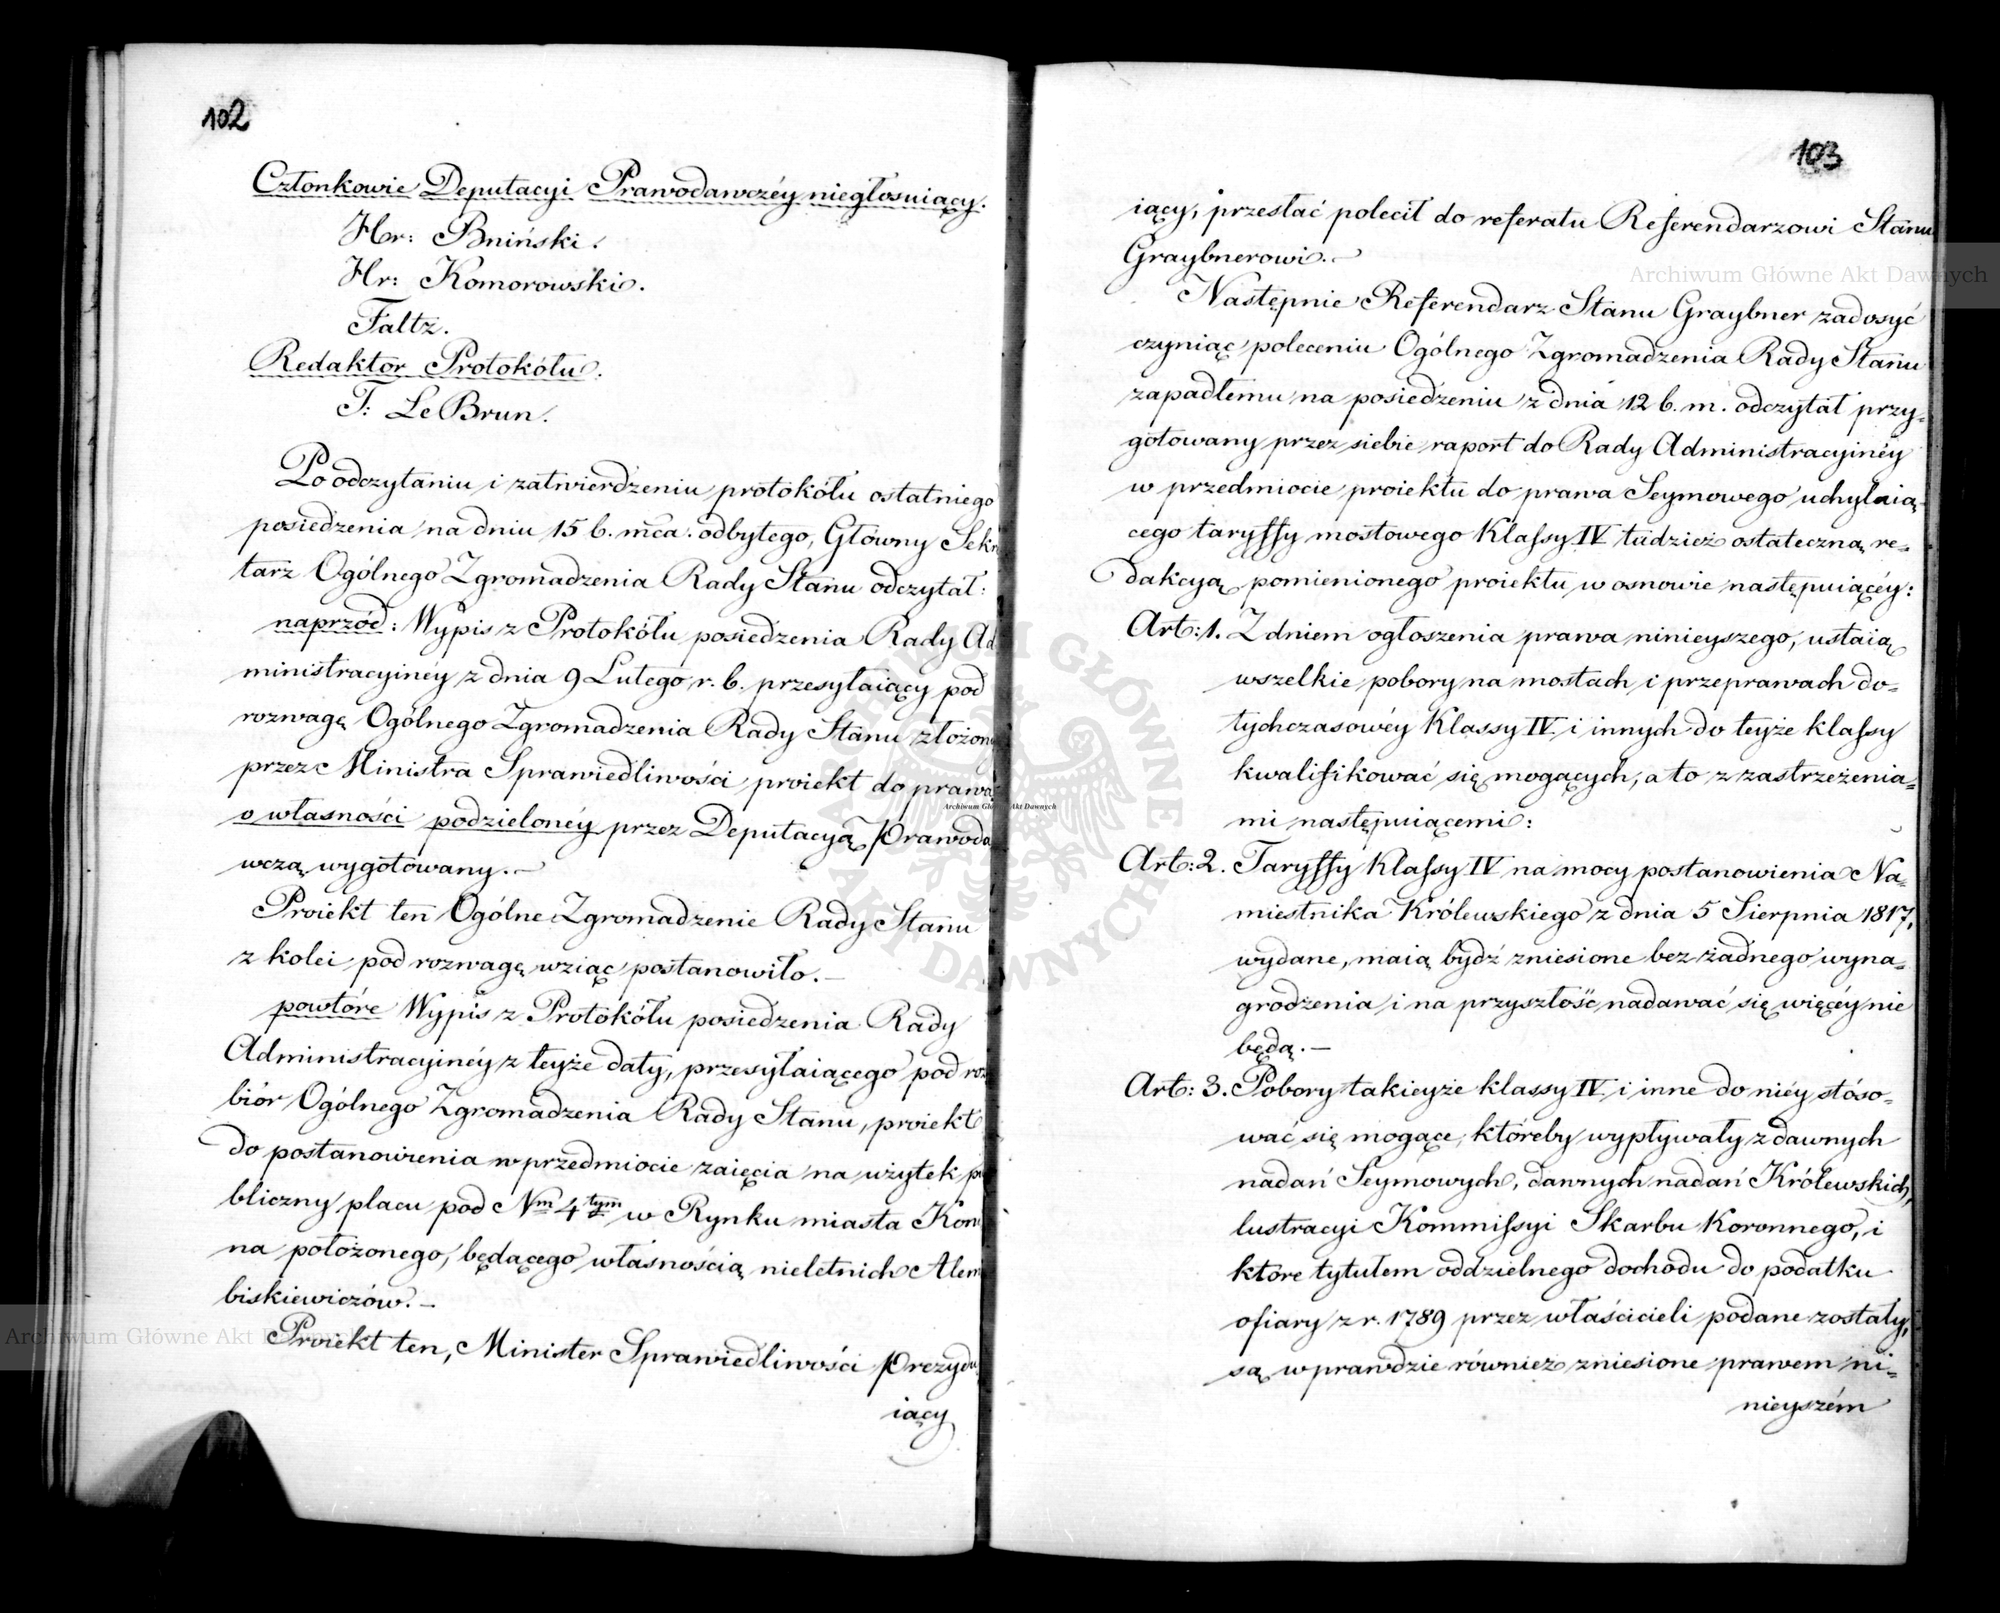 102
Członkowie Deputacyi Prawodawczéy niegłosuiący.
Hr: Bniński.
Hr: Komorowski.
Faltz.
Redaktor Protokółu.
T: Le Brun.
Po odczytaniu i zatwierdzeniu protokółu ostatniego
posiedzenia na dniu 15 b. mca. odbytego, Główny Sekr
tarz Ogólnego Zgromadzenia Rady Stanu odczytał:
naprzód: Wypis z Protokółu posiedzenia Rady Ad
ministracyinéy z dnia 9 Lutego r. b. przesyłaiący pod
rozwagę Ogólnego Zgromadzenia Rady Stanu złożony
przez Ministra Sprawiedliwości proiekt do prawa
o własności podzielonéy przez Deputacyą Prawoda
wczą wygotowany. —
Proiekt ten Ogólne Zgromadzenie Rady Stanu
z kolei pod rozwagę wziąć postanowiło. —
powtóre Wypis z Protokółu posiedzenia Rady
Administracyinéy z teyże daty, przesyłaiącego pod roz
biór Ogólnego Zgromadzenia Rady Stanu, proiekt
do postanowienia w przedmiocie zaięcia na użytek pu
bliczny placu pod Nm 4tym w Rynku miasta Kon
na położonego, będącego własnością nieletnich Alem
biskiewiczów. —
Proiekt ten, Minister Sprawiedliwości Prezydu
iący
103
iący, przesłać polecił do referatu Referendarzowi Stanu
Graybnerowi. —
Następnie Referendarz Stanu Graybner zadosyć
czyniąc poleceniu Ogólnego Zgromadzenia Rady Stanu
zapadłemu na posiedzeniu z dnia 12 b. m. odczytał przy=
gotowany przez siebie raport do Rady Administracyinéy
w przedmiocie proiektu do prawa Seymowego uchylaią=
cego taryffy mostowego Klassy IV tudzież ostateczną re=
dakcyą pomienionego proiektu w osnowie następuiącéy:
Art: 1. Z dniem ogłoszenia prawa ninieyszego, ustaią
wszelkie pobory na mostach i przeprawach do=
tychczasowéy Klassy IV. i innych do teyże klassy
kwalifikować się mogących, a to z zastrzeżenia=
mi następuiącemi:
Art: 2. Taryffy Klassy IV na mocy postanowienia Na=
miestnika Królewskiego z dnia 5 Sierpnia 1817,
wydane, maią bydź zniesione bez żadnego wyna=
grodzenia i na przyszłość nadawać się więcéy nie
będą. —
Art: 3. Pobory takieyże klassy IV. i inne do niéy stóso=
wać się mogące, któreby wypływały z dawnych
nadań Seymowych, dawnych nadań Królewskich,
lustracyi Kommissyi Skarbu Koronnego, i
które tytułem oddzielnego dochodu do podatku
ofiary z r. 1789 przez właścicieli podane zostały,
są wprawdzie również zniesione prawem ni=
nieyszém
Archiwum Główne Akt Dawnych
Archiwum Główne Akt Dawnych
Archiwum Główne Akt Dawnych
ARCHIWUM GŁÓWNE AKT DAWNYCH